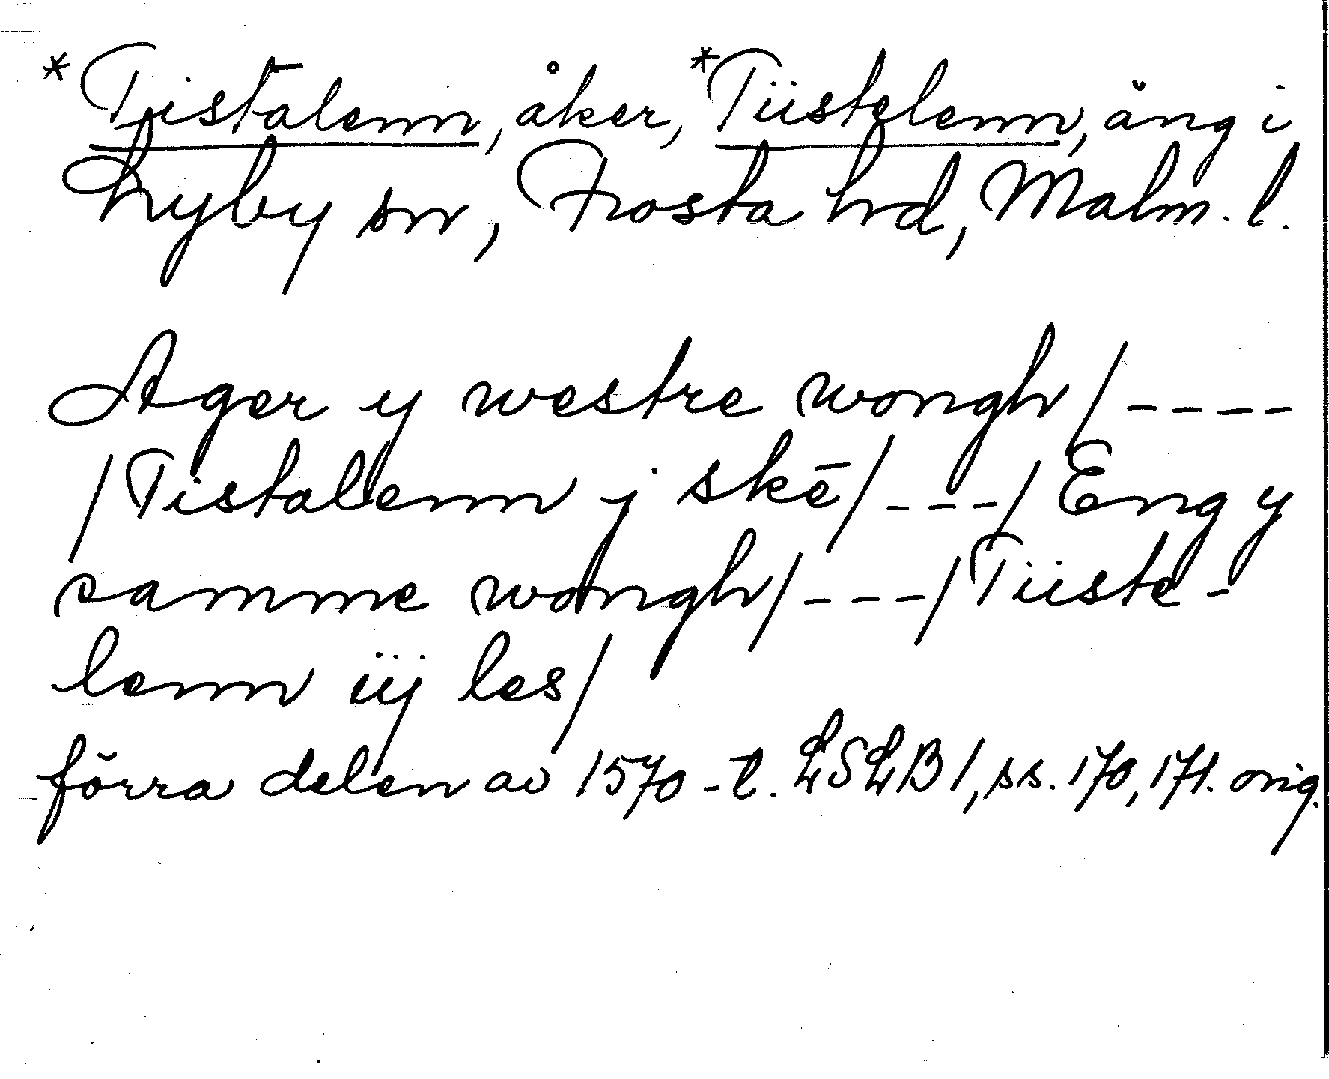 *Tistalenn, åker, *Tiistelenn, äng i
Lyby sn, Frosta hd, Malm. l.
Ager y westre wongh/----
/Tistalenn j skē/---/Eng y
samme wongh/---/Tiiste-
lenn iij les/
förra delen av 1570-t. LSLB 1, ss. 170, 171. orig.